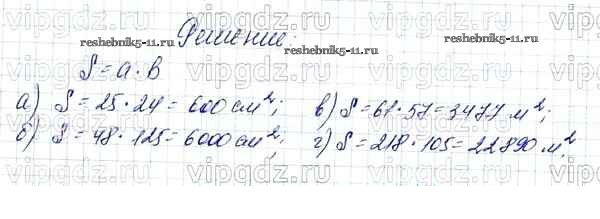 vipgdz.ru vipgdz.ru vipgdz.ru
Решение:
reshebnik5-11.ru reshebnik5-11.ru
S = a · b
vipgdz.ru vipgdz.ru vipgdz.ru
а) S = 25 · 24 = 600 см²; в) S = 61 · 57 = 3477 м²;
б) S = 48 · 125 = 6000 см²; г) S = 218 · 105 = 22890 м²
vipgdz.ru vipgdz.ru vipgdz.ru